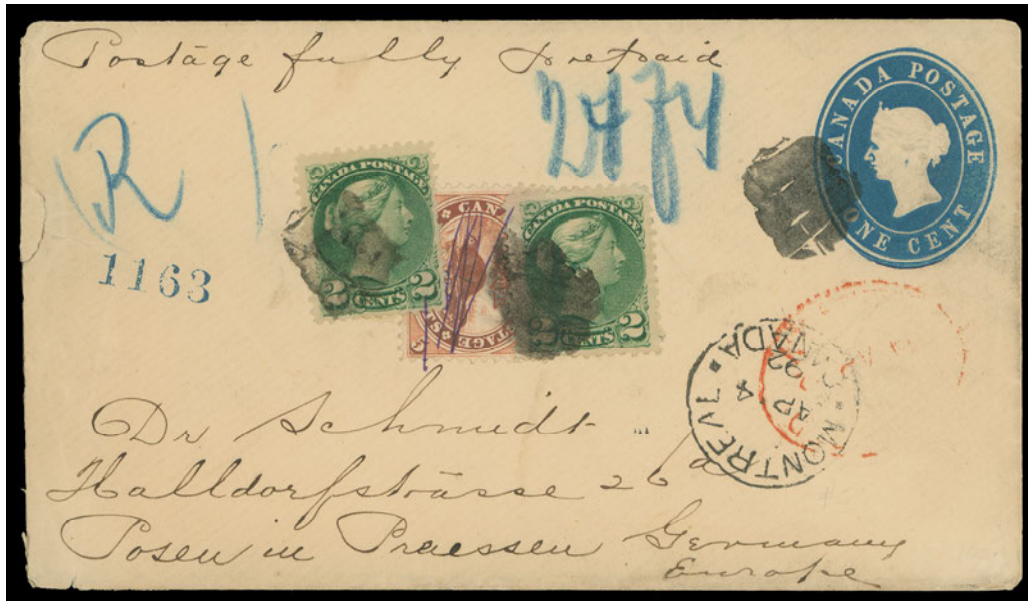 Postage fully prepaid
CANADA POSTAGE
ONE CENT
R
1163
CANADA POSTAGE
2 CENTS 2
CAN
CANADA POSTAGE
2 CENTS 2
MONTREAL
CANADA
AP 4
92
Dr Schmidt
Halldorfstrasse 26 a
Posen in Praessen Germany
Europe